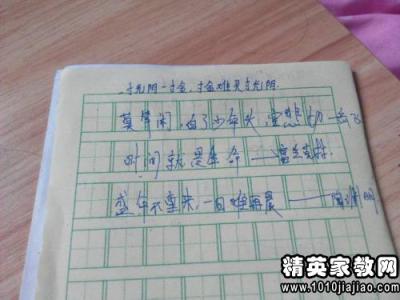 一寸光阴一寸金,寸金难买寸光阴.
莫等闲,白了少年头,空悲切——岳飞
时间就是生命——富兰克林
盛年不重来,一日难再晨——陶渊明
精英家教网
www.1010jiajiao.com